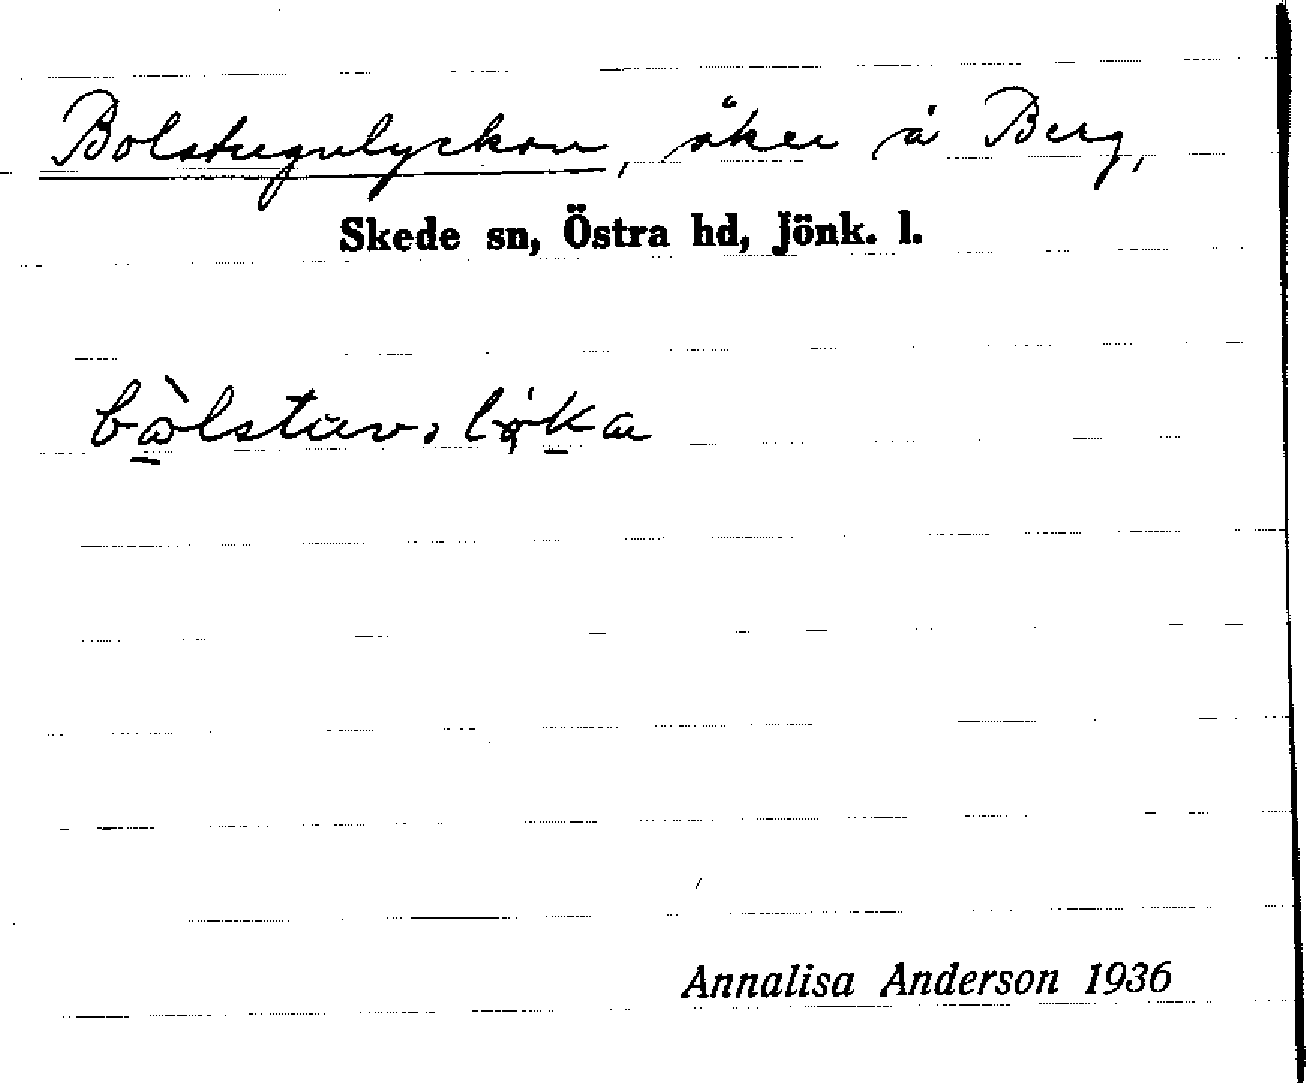 Bolstugulyckan, åker å Berg,
Skede sn, Östra hd, Jönk. l.
Annalisa Anderson 1936